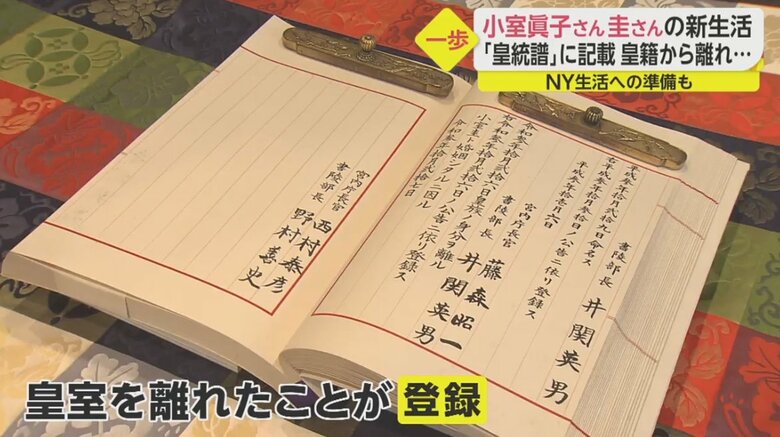 一歩
小室眞子さん 圭さんの新生活
「皇統譜」に記載 皇籍から離れ…
NY生活への準備も
書陵部長 井関英男
平成参年拾月弐拾九日命名ス
右平成参年拾月参拾日ノ公告ニ依リ登録ス
平成参年拾壱月六日
宮内庁長官 藤森昭一
書陵部長 井関英男
令和参年拾月弐拾六日皇族ノ身分ヲ離ル
小室圭ト婚姻シタルニ因ル
右令和参年拾月弐拾六日ノ公告ニ依リ登録ス
令和参年拾月弐拾七日
宮内庁長官 西村泰彦
書陵部長 野村善史
皇室を離れたことが 登録